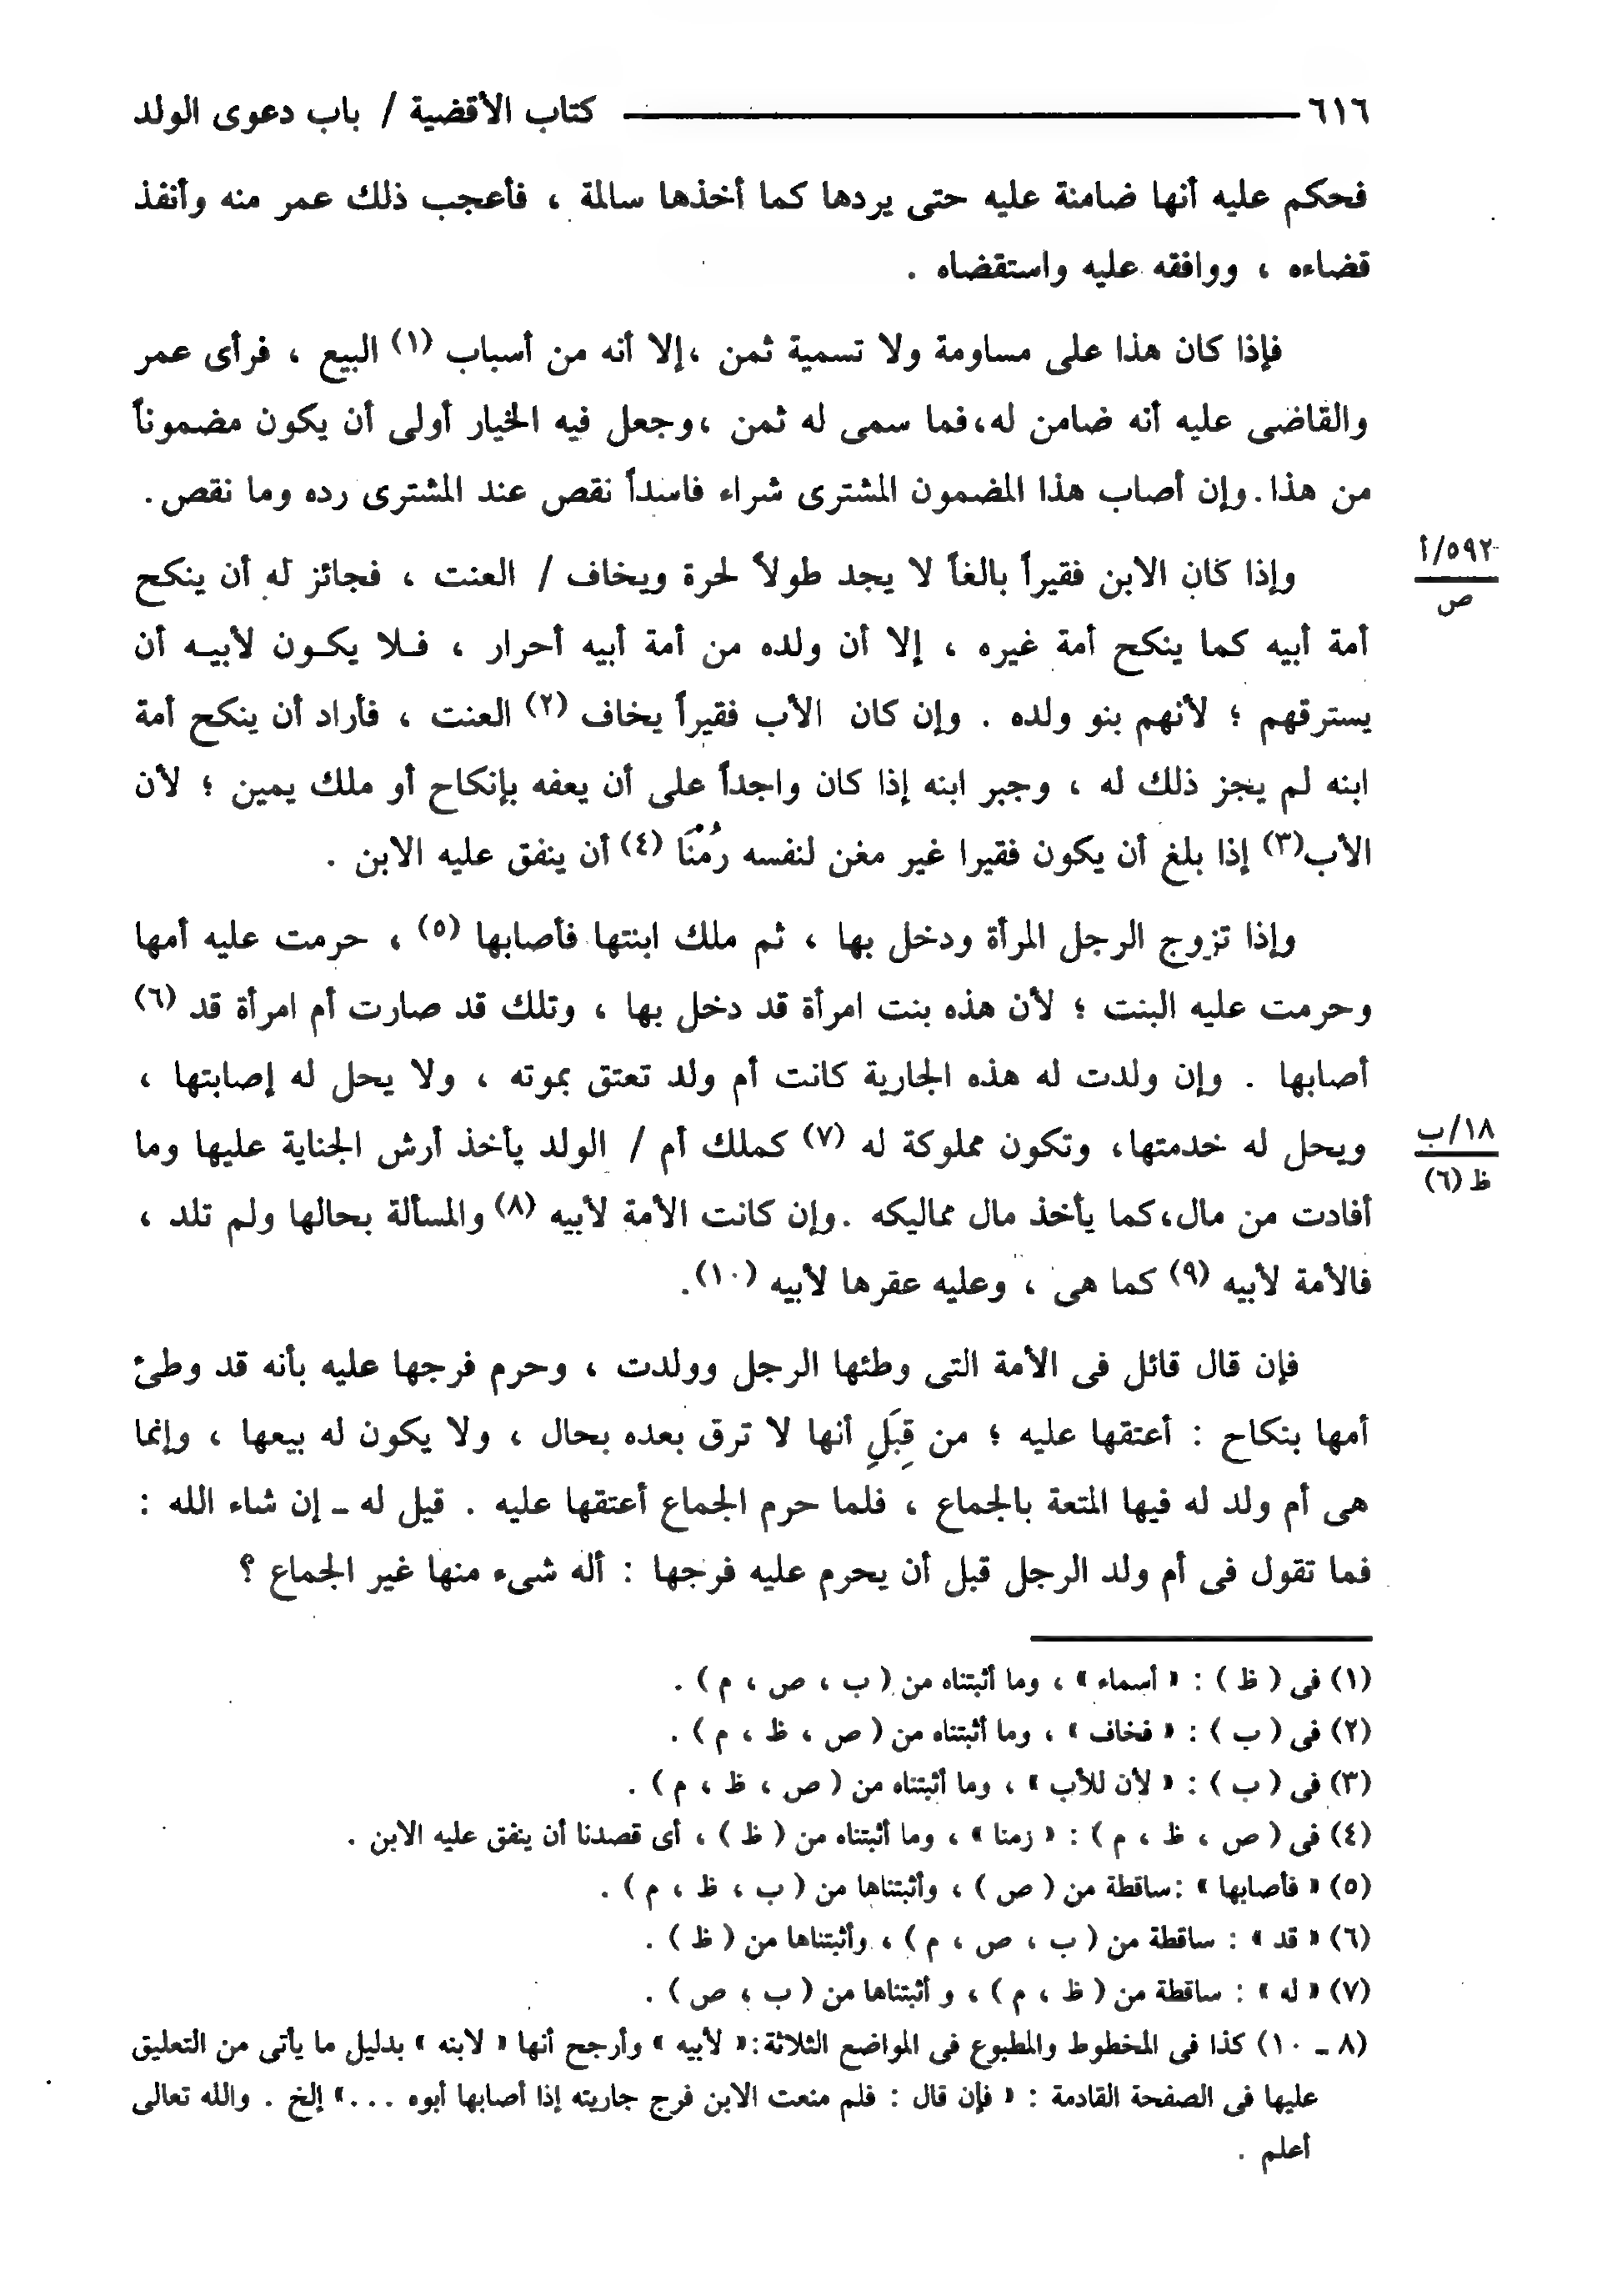 ٦١٦ كتاب الأقضية / باب دعوى الولد
فحكم عليه أنها ضامنة عليه حتى يردها كما أخذها سالمة ، فأعجب ذلك عمر منه وأنفذ
قضاءه ، ووافقه عليه واستقضاه .
فإذا كان هذا على مساومة ولا تسمية ثمن ،إلا أنه من أسباب (١) البيع ، فرأى عمر
والقاضى عليه أنه ضامن له،فما سمى له ثمن ،وجعل فيه الخيار أولى أن يكون مضموناً
من هذا.وإن أصاب هذا المضمون المشترى شراء فاسداً نقص عند المشترى رده وما نقص.
وإذا كان الابن فقيراً بالغاً لا يجد طولاً لحرة ويخاف / العنت ، فجائز له أن ينكح
٥٩٢/أ
ص
أمة أبيه كما ينكح أمة غيره ، إلا أن ولده من أمة أبيه أحرار ، فلا يكون لأبيه أن
يسترقهم ؛ لأنهم بنو ولده . وإن كان الأب فقيراً يخاف (٢) العنت ، فأراد أن ينكح أمة
ابنه لم يجز ذلك له ، وجبر ابنه إذا كان واجداً على أن يعفه بإنكاح أو ملك يمين ؛ لأن
الأب(٣) إذا بلغ أن يكون فقيرا غير مغن لنفسه رُمْنَا (٤) أن ينفق عليه الابن .
وإذا تزوج الرجل المرأة ودخل بها ، ثم ملك ابنتها فأصابها (٥) ، حرمت عليه أمها
وحرمت عليه البنت ؛ لأن هذه بنت امرأة قد دخل بها ، وتلك قد صارت أم امرأة قد (٦)
أصابها . وإن ولدت له هذه الجارية كانت أم ولد تعتق بموته ، ولا يحل له إصابتها ،
ويحل له خدمتها، وتكون مملوكة له (٧) كملك أم / الولد يأخذ أرش الجناية عليها وما
١٨/ب
ظ (٦)
أفادت من مال،كما يأخذ مال مماليكه .وإن كانت الأمة لأبيه (٨) والمسألة بحالها ولم تلد ،
فالأمة لأبيه (٩) كما هى ، وعليه عقرها لأبيه (١٠).
فإن قال قائل فى الأمة التى وطئها الرجل وولدت ، وحرم فرجها عليه بأنه قد وطئ
أمها بنكاح : أعتقها عليه ؛ من قِبَلِ أنها لا ترق بعده بحال ، ولا يكون له بيعها ، وإنما
هى أم ولد له فيها المتعة بالجماع ، فلما حرم الجماع أعتقها عليه . قيل له ـ إن شاء الله :
فما تقول فى أم ولد الرجل قبل أن يحرم عليه فرجها : أله شىء منها غير الجماع ؟
(١) فى ( ظ ) : « أسماء » ، وما أثبتناه من ( ب ، ص ، م ) .
(٢) فى ( ب ) : « فخاف » ، وما أثبتناه من ( ص ، ظ ، م ) .
(٣) فى ( ب ) : « لأن للأب » ، وما أثبتناه من ( ص ، ظ ، م ) .
(٤) فى ( ص ، ظ ، م ) : « زمنا » ، وما أثبتناه من ( ظ ) ، أى قصدنا أن ينفق عليه الابن .
(٥) « فأصابها » :ساقطة من ( ص ) ، وأثبتناها من ( ب ، ظ ، م ) .
(٦) « قد » : ساقطة من ( ب ، ص ، م ) ، وأثبتناها من ( ظ ) .
(٧) « له » : ساقطة من ( ظ ، م ) ، و أثبتناها من ( ب ، ص ) .
(٨ ـ ١٠) كذا فى المخطوط والمطبوع فى المواضع الثلاثة:« لأبيه » وأرجح أنها « لابنه » بدليل ما يأتى من التعليق
عليها فى الصفحة القادمة : « فإن قال : فلم منعت الابن فرج جاريته إذا أصابها أبوه ...» إلخ . والله تعالى
أعلم .